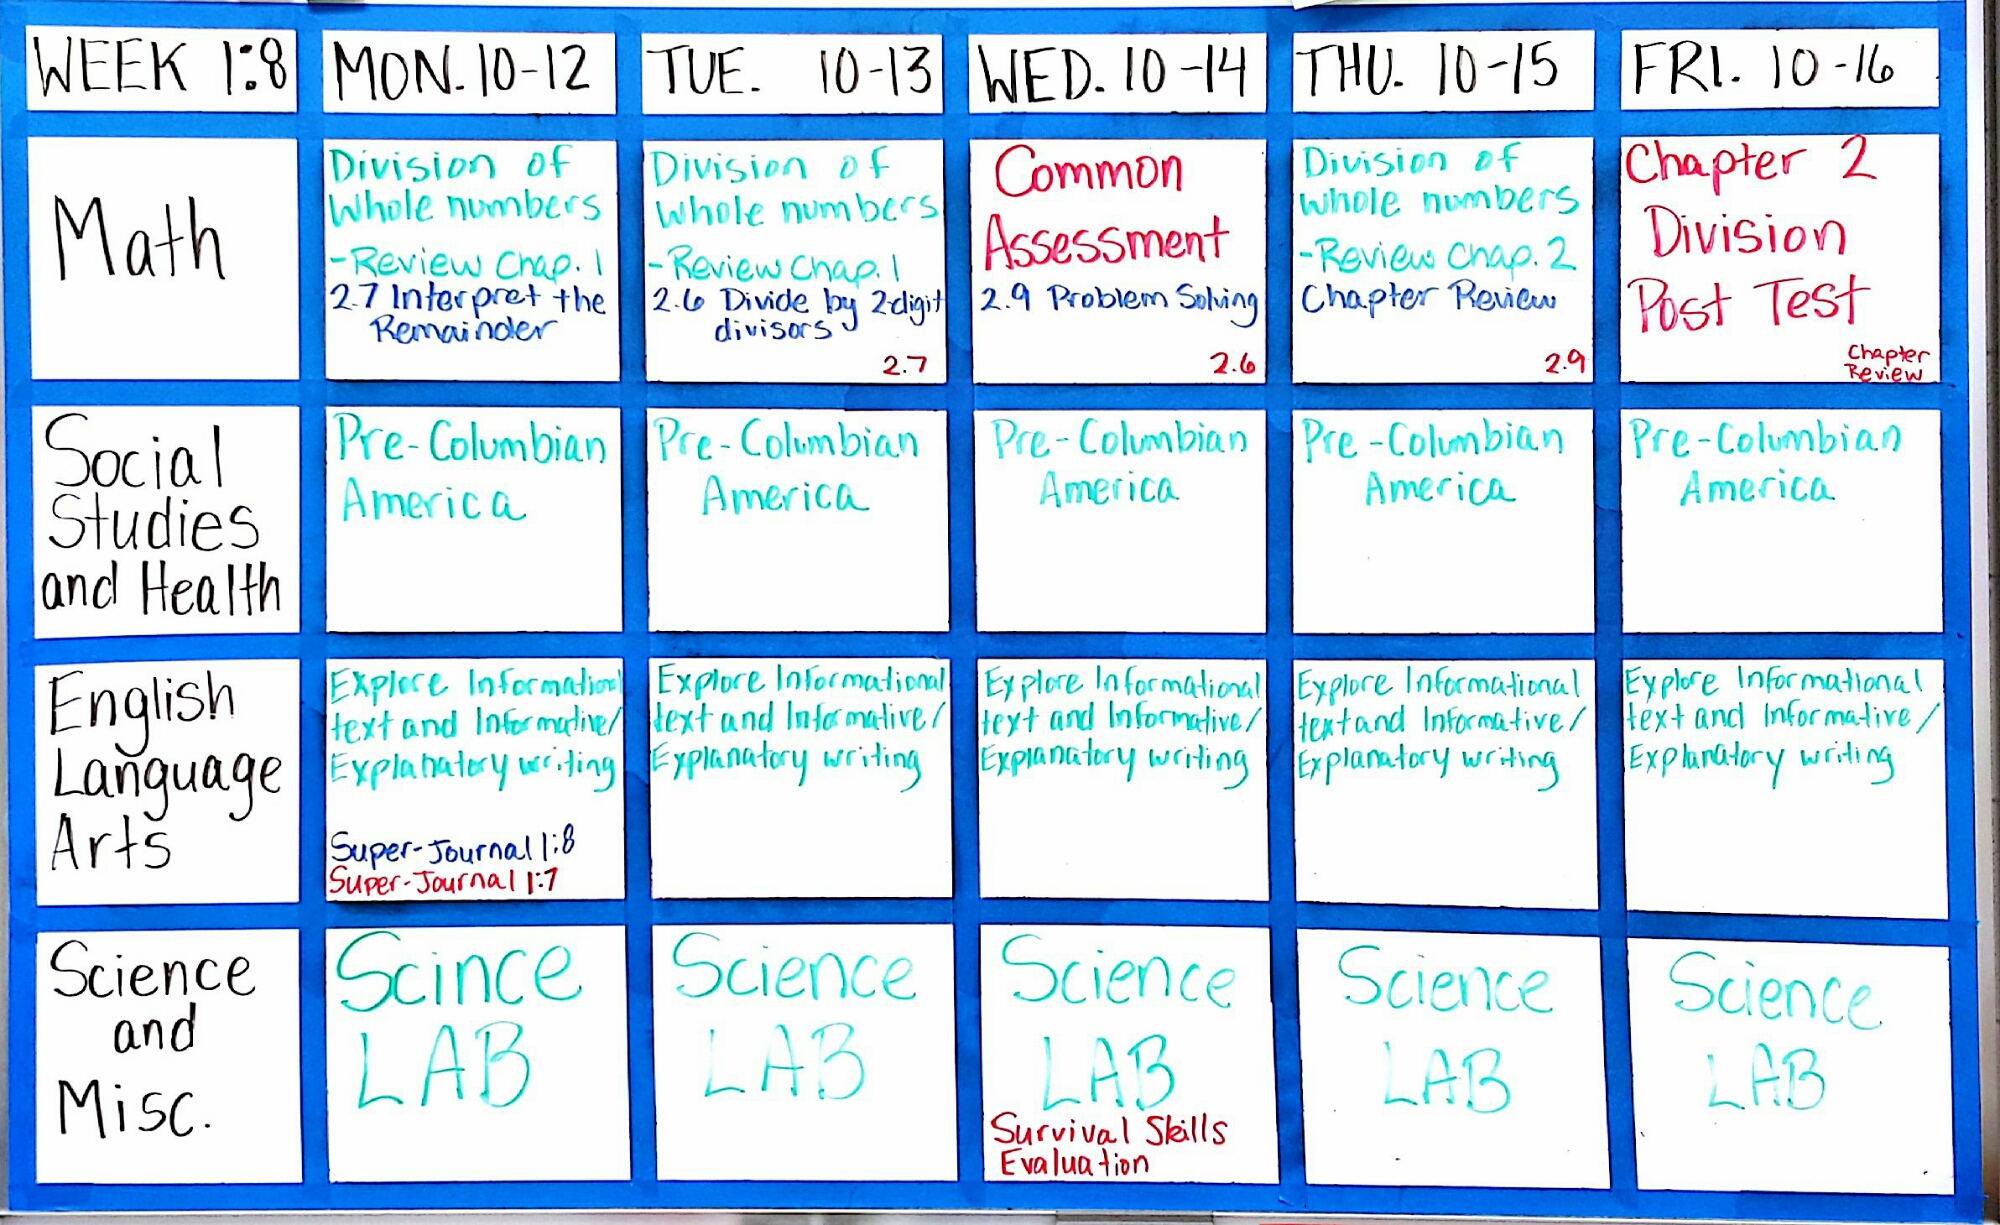 WEEK 1:8
MON. 10-12
TUE. 10-13
WED. 10-14
THU. 10-15
FRI. 10-16
Math
Division of
Whole numbers
-Review Chap. 1
2.7 Interpret the
Remainder
Division of
Whole numbers
-Review Chap. 1
2.6 Divide by 2-digit
divisors
2.7
Common
Assessment
2.9 Problem Solving
2.6
Division of
Whole numbers
-Review Chap. 2
Chapter Review
2.9
Chapter 2
Division
Post Test
Chapter
Review
Social
Studies
and Health
Pre-Columbian
America
Pre-Columbian
America
Pre-Columbian
America
Pre-Columbian
America
Pre-Columbian
America
English
Language
Arts
Explore Informational
text and Informative/
Explanatory writing
Super-Journal 1:8
Super-Journal 1:7
Explore Informational
text and Informative/
Explanatory writing
Explore Informational
text and Informative/
Explanatory writing
Explore Informational
text and Informative/
Explanatory writing
Explore Informational
text and Informative/
Explanatory writing
Science
and
Misc.
Scince
LAB
Science
LAB
Science
LAB
Survival Skills
Evaluation
Science
LAB
Science
LAB